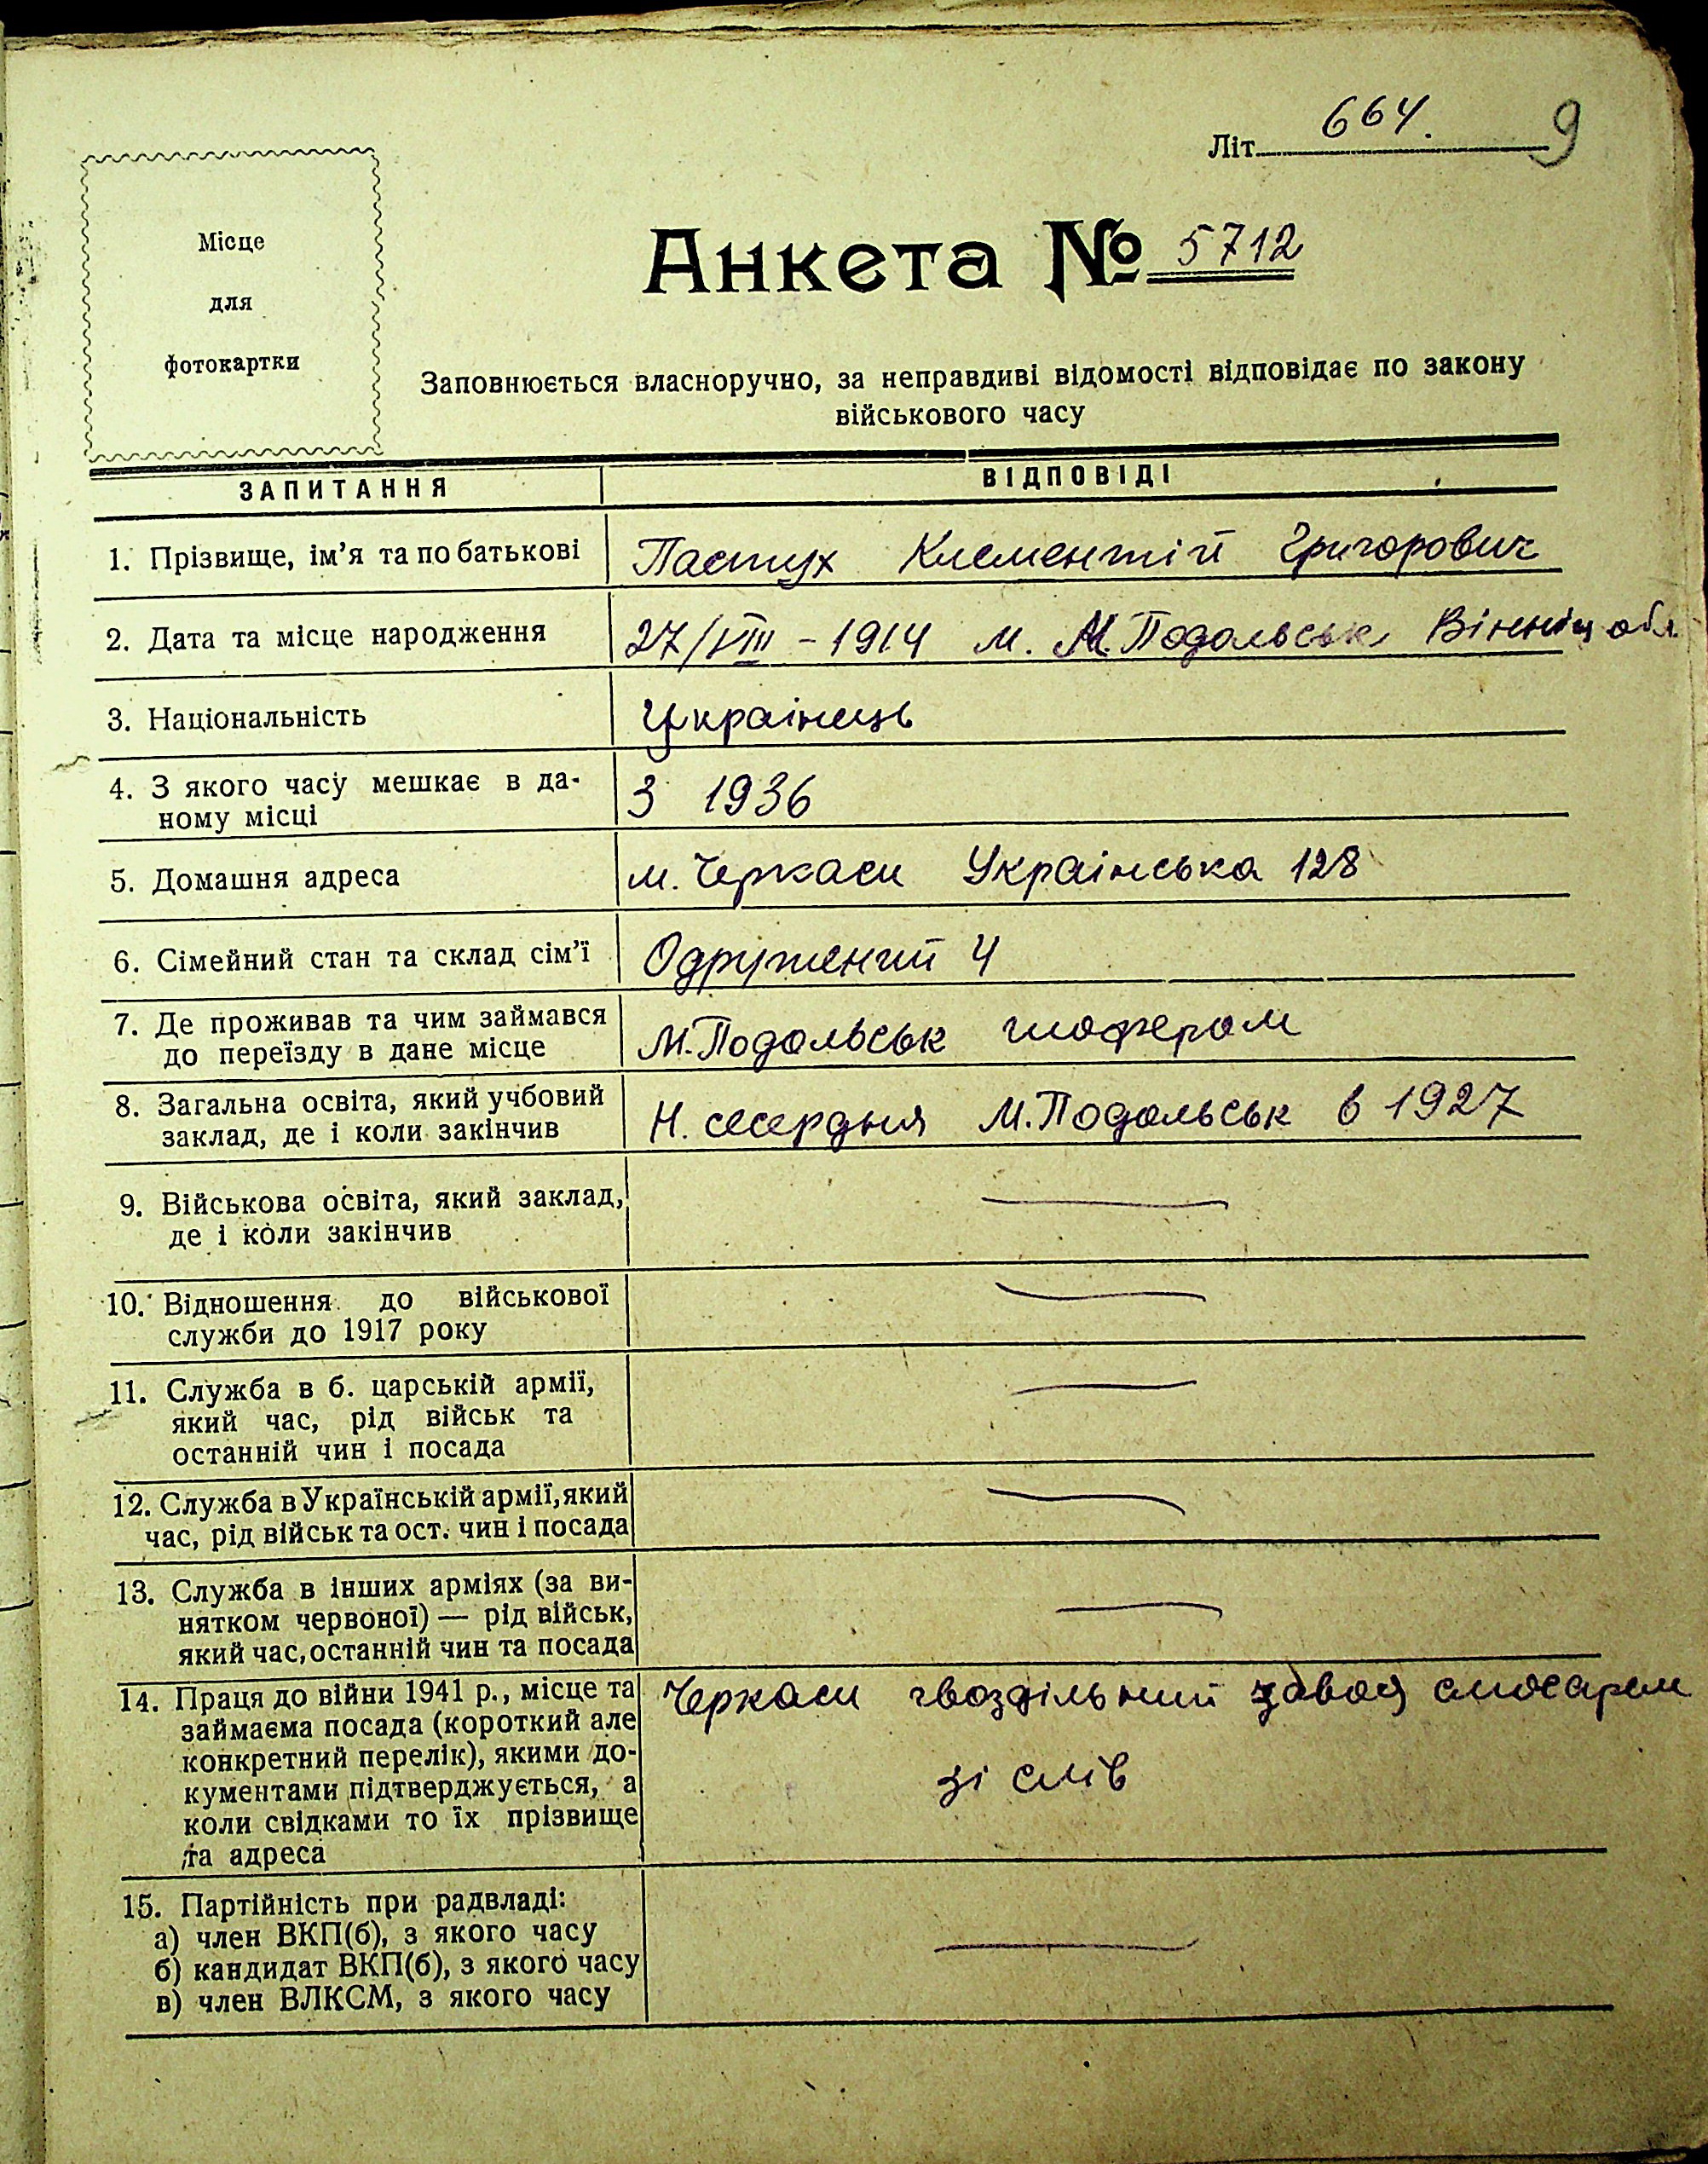 Літ. 664. 9
Місце
для
фотокартки
Анкета № 5712
Заповнюється власноручно, за неправдиві відомості відповідає по закону
військового часу
ЗАПИТАННЯ ВІДПОВІДІ
1. Прізвище, ім'я та по батькові Пастух Клементій Григорович
2. Дата та місце народження 27/VIII - 1914 м. М.Подольськ Вінниц обл
3. Національність Українець
4. З якого часу мешкає в да-
ному місці З 1936
5. Домашня адреса м. Черкаси Українська 128
6. Сімейний стан та склад сім'ї Одружений 4
7. Де проживав та чим займався
до переїзду в дане місце М.Подольськ шофером
8. Загальна освіта, який учбовий
заклад, де і коли закінчив Н. сесердня М.Подольськ в 1927
9. Військова освіта, який заклад,
де і коли закінчив —
10. Відношення до військової
служби до 1917 року —
11. Служба в б. царській армії,
який час, рід військ та
останній чин і посада —
12. Служба в Українській армії, який
час, рід військ та ост. чин і посада —
13. Служба в інших арміях (за ви-
нятком червоної) — рід військ,
який час, останній чин та посада —
14. Праця до війни 1941 р., місце та Черкаси гвоздільний завод слюсарем
займаєма посада (короткий але
конкретний перелік), якими до- зі слів
кументами підтверджується, а
коли свідками то їх прізвище
та адреса
15. Партійність при радвладі:
а) член ВКП(б), з якого часу
б) кандидат ВКП(б), з якого часу —
в) член ВЛКСМ, з якого часу